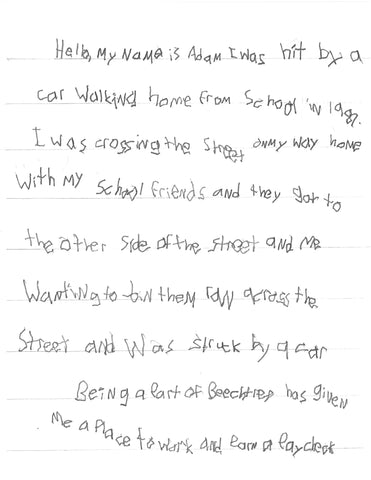 Hello, My Name is Adam I was hit by a
car walking home From School in 1987.
I was crossing the street on my way home
With My School Friends and they got to
the other side of the street and Me
Wanting to join them ran across the
Street and Was struck by a car
Being a Part of Beechtree has given
Me a Place to work and earn a Paycheck